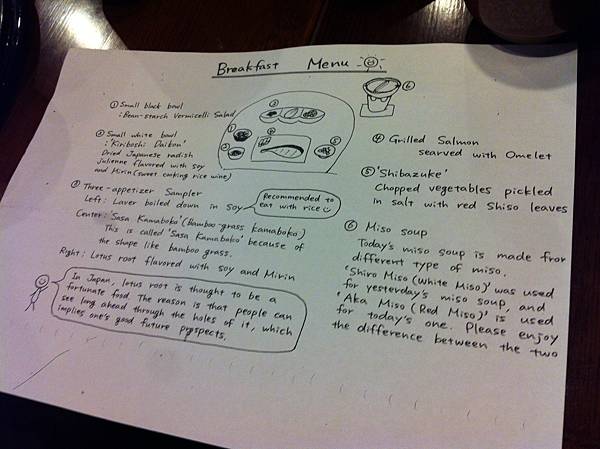 Breakfast Menu
① Small black bowl
: Bean-starch Vermicelli Salad
② Small white bowl
: 'Kiriboshi Daikon'
Dried Japanese radish
julienne flavored with soy
and Mirin (sweet cooking rice wine)
③ Three-appetizer Sampler
Left: Laver boiled down in soy
Recommended to
eat with rice
Center: 'Sasa Kamaboko' (bamboo-grass kamaboko)
This is called 'Sasa Kamaboko' because of
the shape like bamboo grass.
Right: Lotus root flavored with soy and Mirin
In Japan, lotus root is thought to be a
fortunate food. The reason is that people can
see long ahead through the holes of it, which
implies one's good future prospects.
③
①
②
④
⑤
⑥
④ Grilled Salmon
searved with Omelet
⑤ 'Shibazuke'
Chopped vegetables pickled
in salt with red Shiso leaves
⑥ Miso soup
Today's miso soup is made from
different type of miso.
'Shiro Miso (White Miso)' was used
for yesterday's miso soup, and
'Aka Miso (Red Miso)' is used
for today's one. Please enjoy
the difference between the two